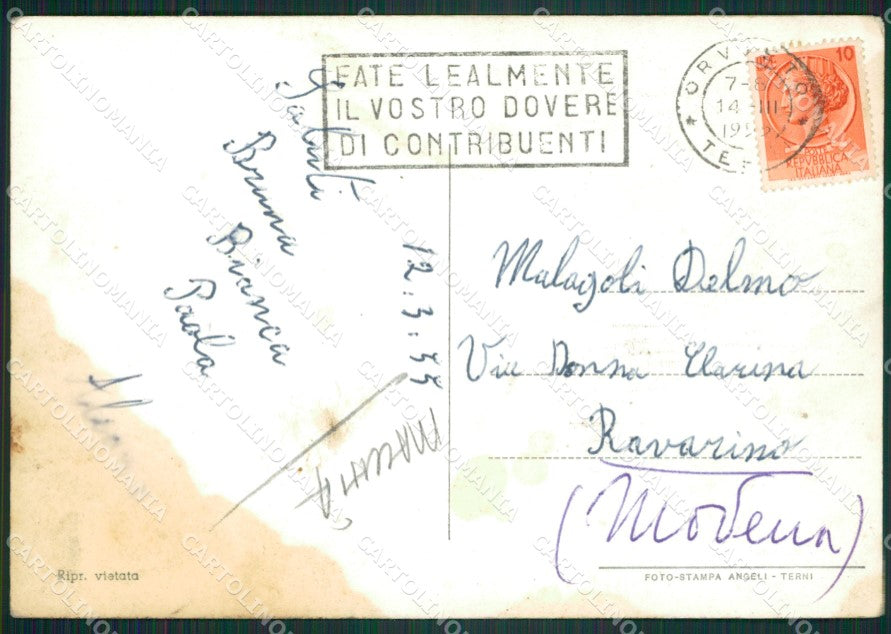 FATE LEALMENTE
IL VOSTRO DOVERE
DI CONTRIBUENTI
ORVIETO
7-8
14 III
10
POSTE
REPUBBLICA
ITALIANA
Saluti
Bruna
Bianca
Paola
12.3.55
Malagoli Delmo
Via Donna Clarina
Ravarino
(Modena)
Ripr. vietata
FOTO-STAMPA ANGELI - TERNI
CARTOLINOMANIA